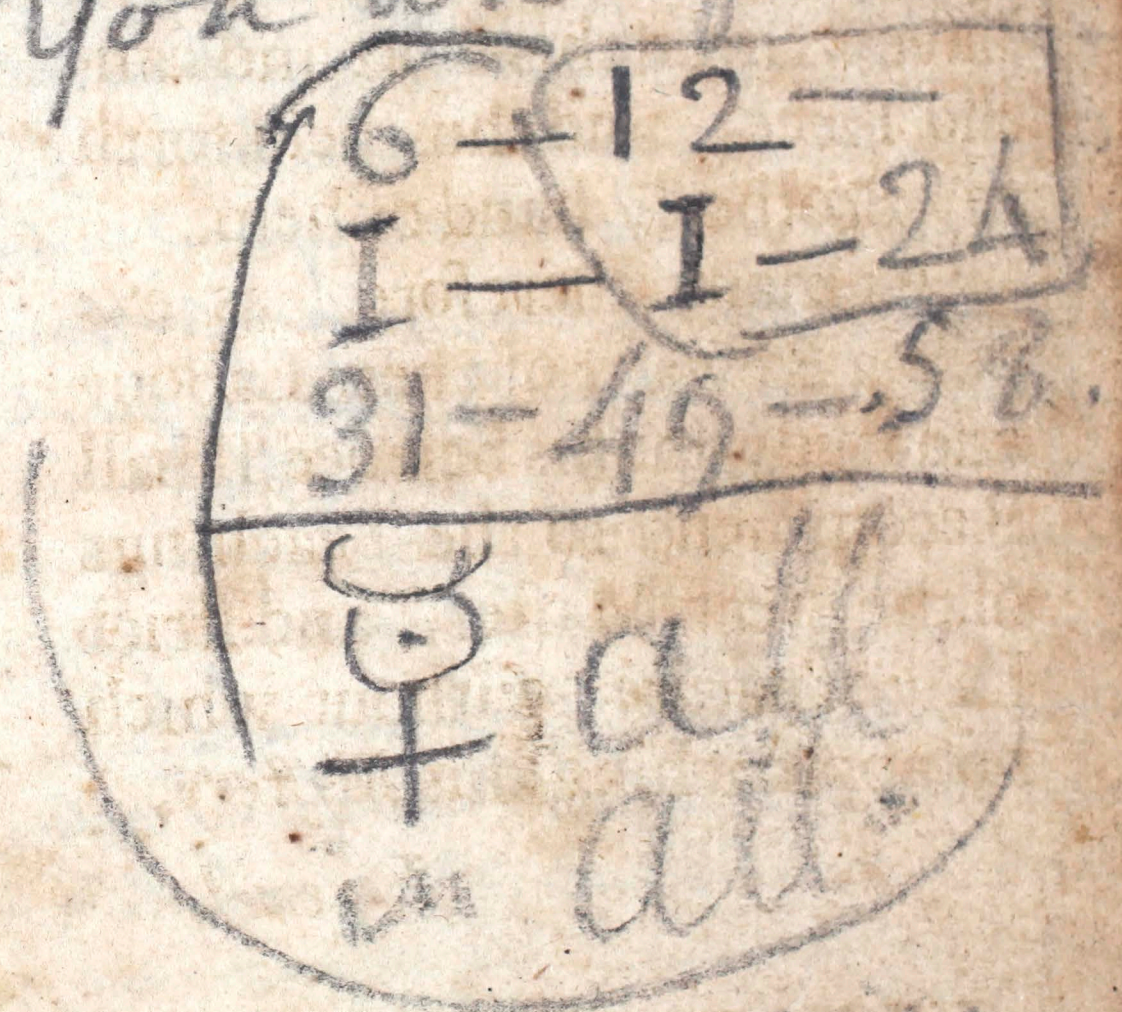 You
6 — 12 —
I — I — 24
31 — 49 — 58.
☿ all
in all.